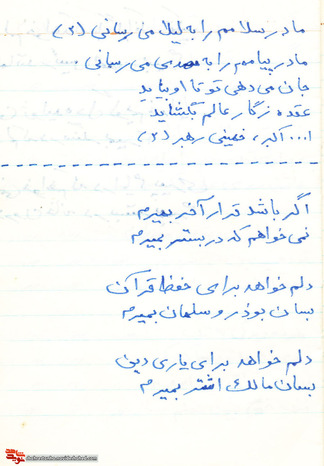 مادر سلامم را به لیلا می رسانی (۲)
مادر پیامم را به مهدی می رسانی
جان می دهی تو تا او بیاید
عقده ز کار عالم گشاید
ا... اکبر، خمینی رهبر (۲)
اگر باشد قرار آخر بمیرم
نمی خواهم که در بستر بمیرم
دلم خواهد برای حفظ قرآن
بسان بوذر و سلمان بمیرم
دلم خواهد برای یاری دین
بسان مالک اشتر بمیرم